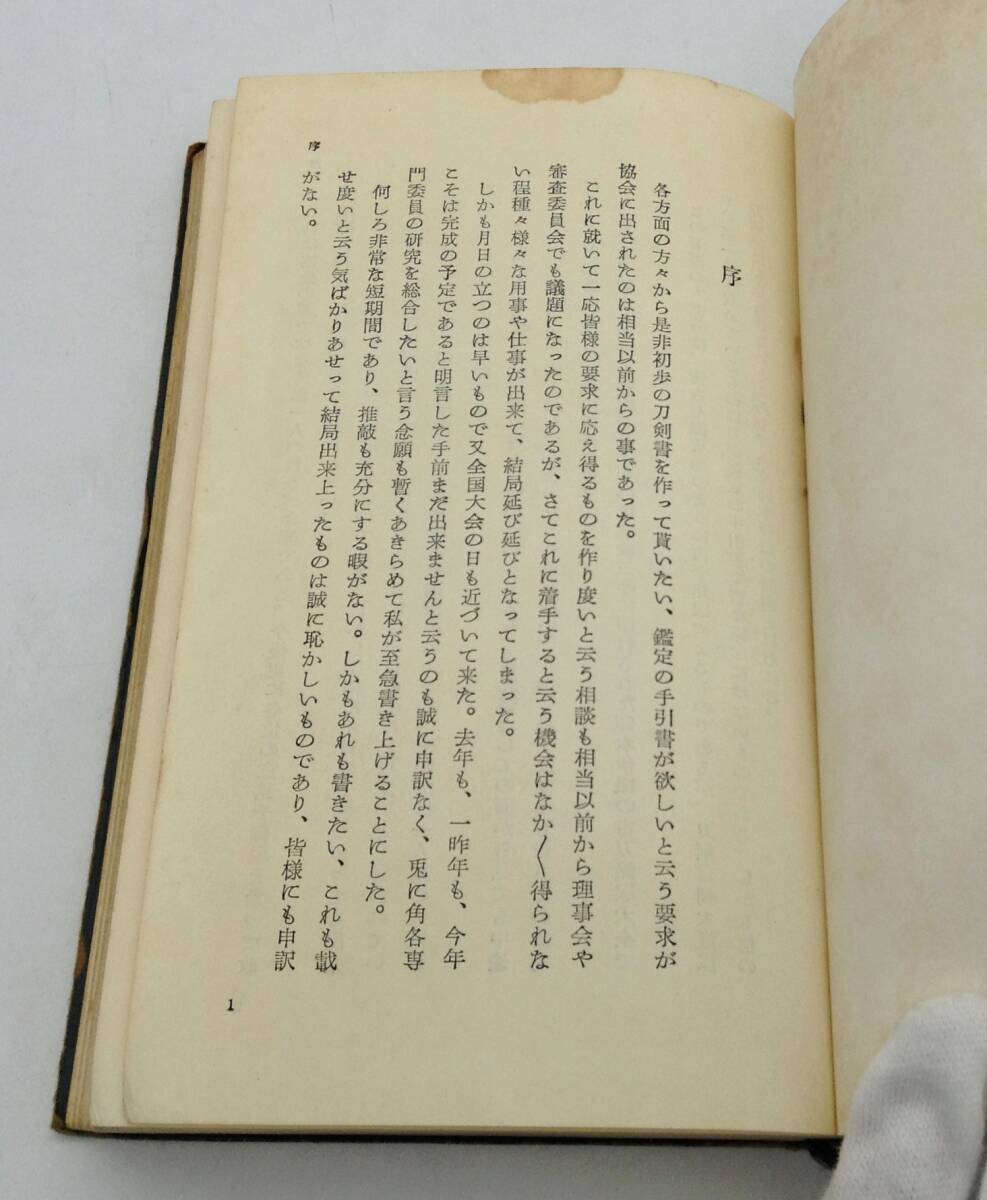 序
各方面の方々から是非初歩の刀剣書を作って貰いたい、鑑定の手引書が欲しいと云う要求が
協会に出されたのは相当以前からの事であった。
これに就いて一応皆様の要求に応え得るものを作り度いと云う相談も相当以前から理事会や
審査委員会でも議題になったのであるが、さてこれに着手すると云う機会はなか〱得られな
い程種々様々な用事や仕事が出来て、結局延び延びとなってしまった。
しかも月日の立つのは早いもので又全国大会の日も近づいて来た。去年も、一昨年も、今年
こそは完成の予定であると明言した手前まだ出来ませんと云うのも誠に申訳なく、兎に角各専
門委員の研究を総合したいと言う念願も暫くあきらめて私が至急書き上げることにした。
何しろ非常な短期間であり、推敲も充分にする暇がない。しかもあれも書きたい、これも載
せ度いと云う気ばかりあせって結局出来上ったものは誠に恥かしいものであり、皆様にも申訳
がない。
序
1